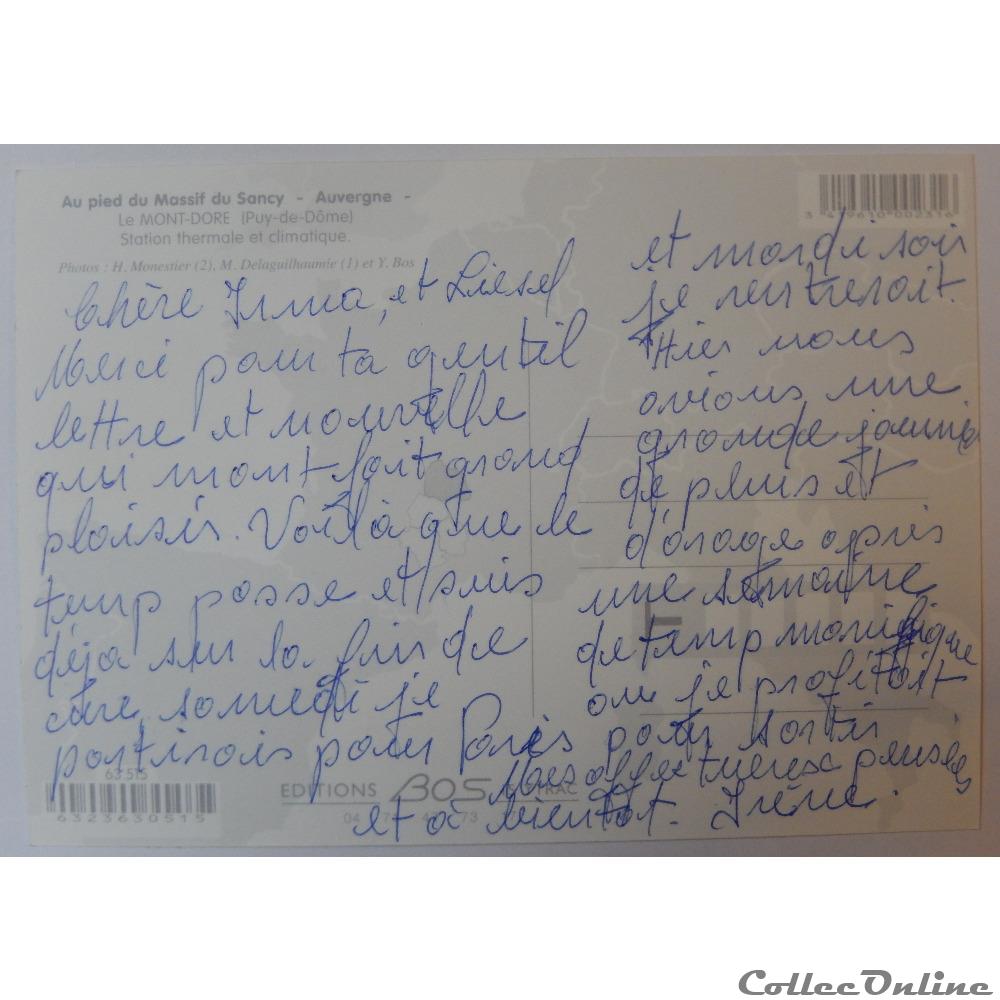 Au pied du Massif du Sancy - Auvergne -
Le MONT-DORE (Puy-de-Dôme)
Station thermale et climatique.
Photos : H. Monestier (2), M. Delaguilhaumie (1) et Y. Bos
3 479610 002316
Chère Irma, et Liesel
Merci pour ta gentil
lettre et nouvelle
qui mont fait grand
plaisir. Voilà que le
temp passe et suis
déja sur la fin de
cure, somedi je
partirais pour Paris
et mardi soir
je rentrerait.
Hier nous
avions une
grande journée
de pluis et
d'orage après
une semaine
de temp manifique
ou je profitait
pour sortir
Mes affectueuses pensées
et à bientôt. Irène.
63 515
6323630515
EDITIONS BOS